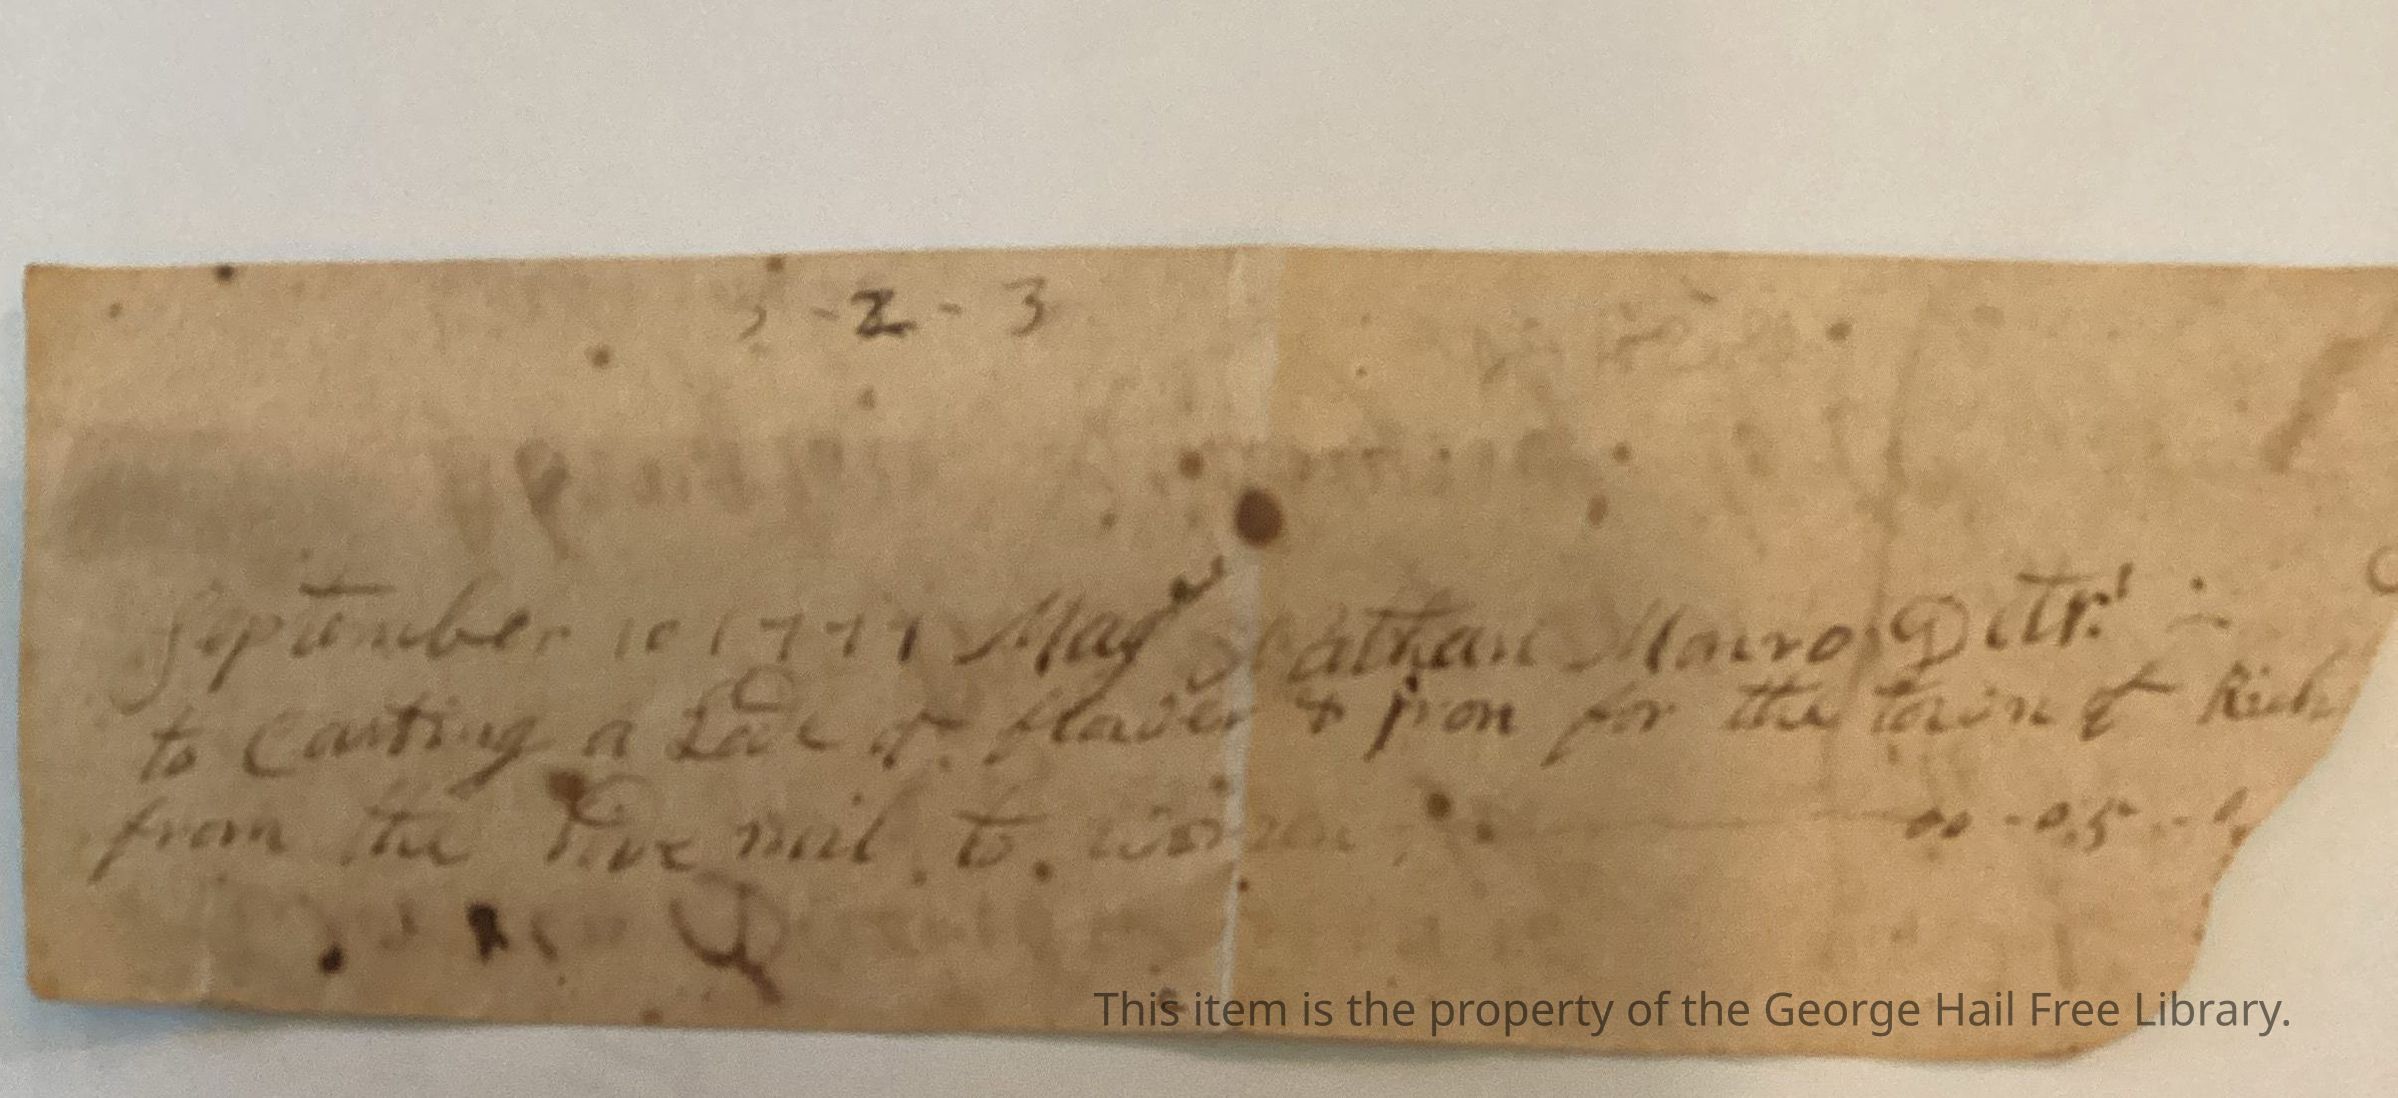 - 2 - 3
September 10 1777 Majr Nathan Mauro Detr.
to Carting a Lode of flower & jron for the town of Rich
from the five mil to. warren 00 - 05 - 0
This item is the property of the George Hail Free Library.